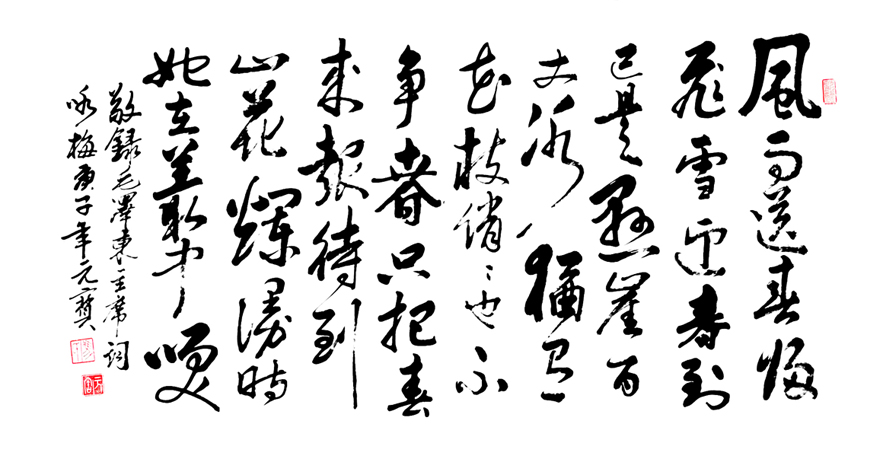 風雨送春歸
飛雪迎春到
已是懸崖百
丈冰猶有
花枝俏〻也不
争春只把春
来報待到
山花爛漫時
她在叢中咲
敬録毛澤東主席詞
咏梅庚子年元寶